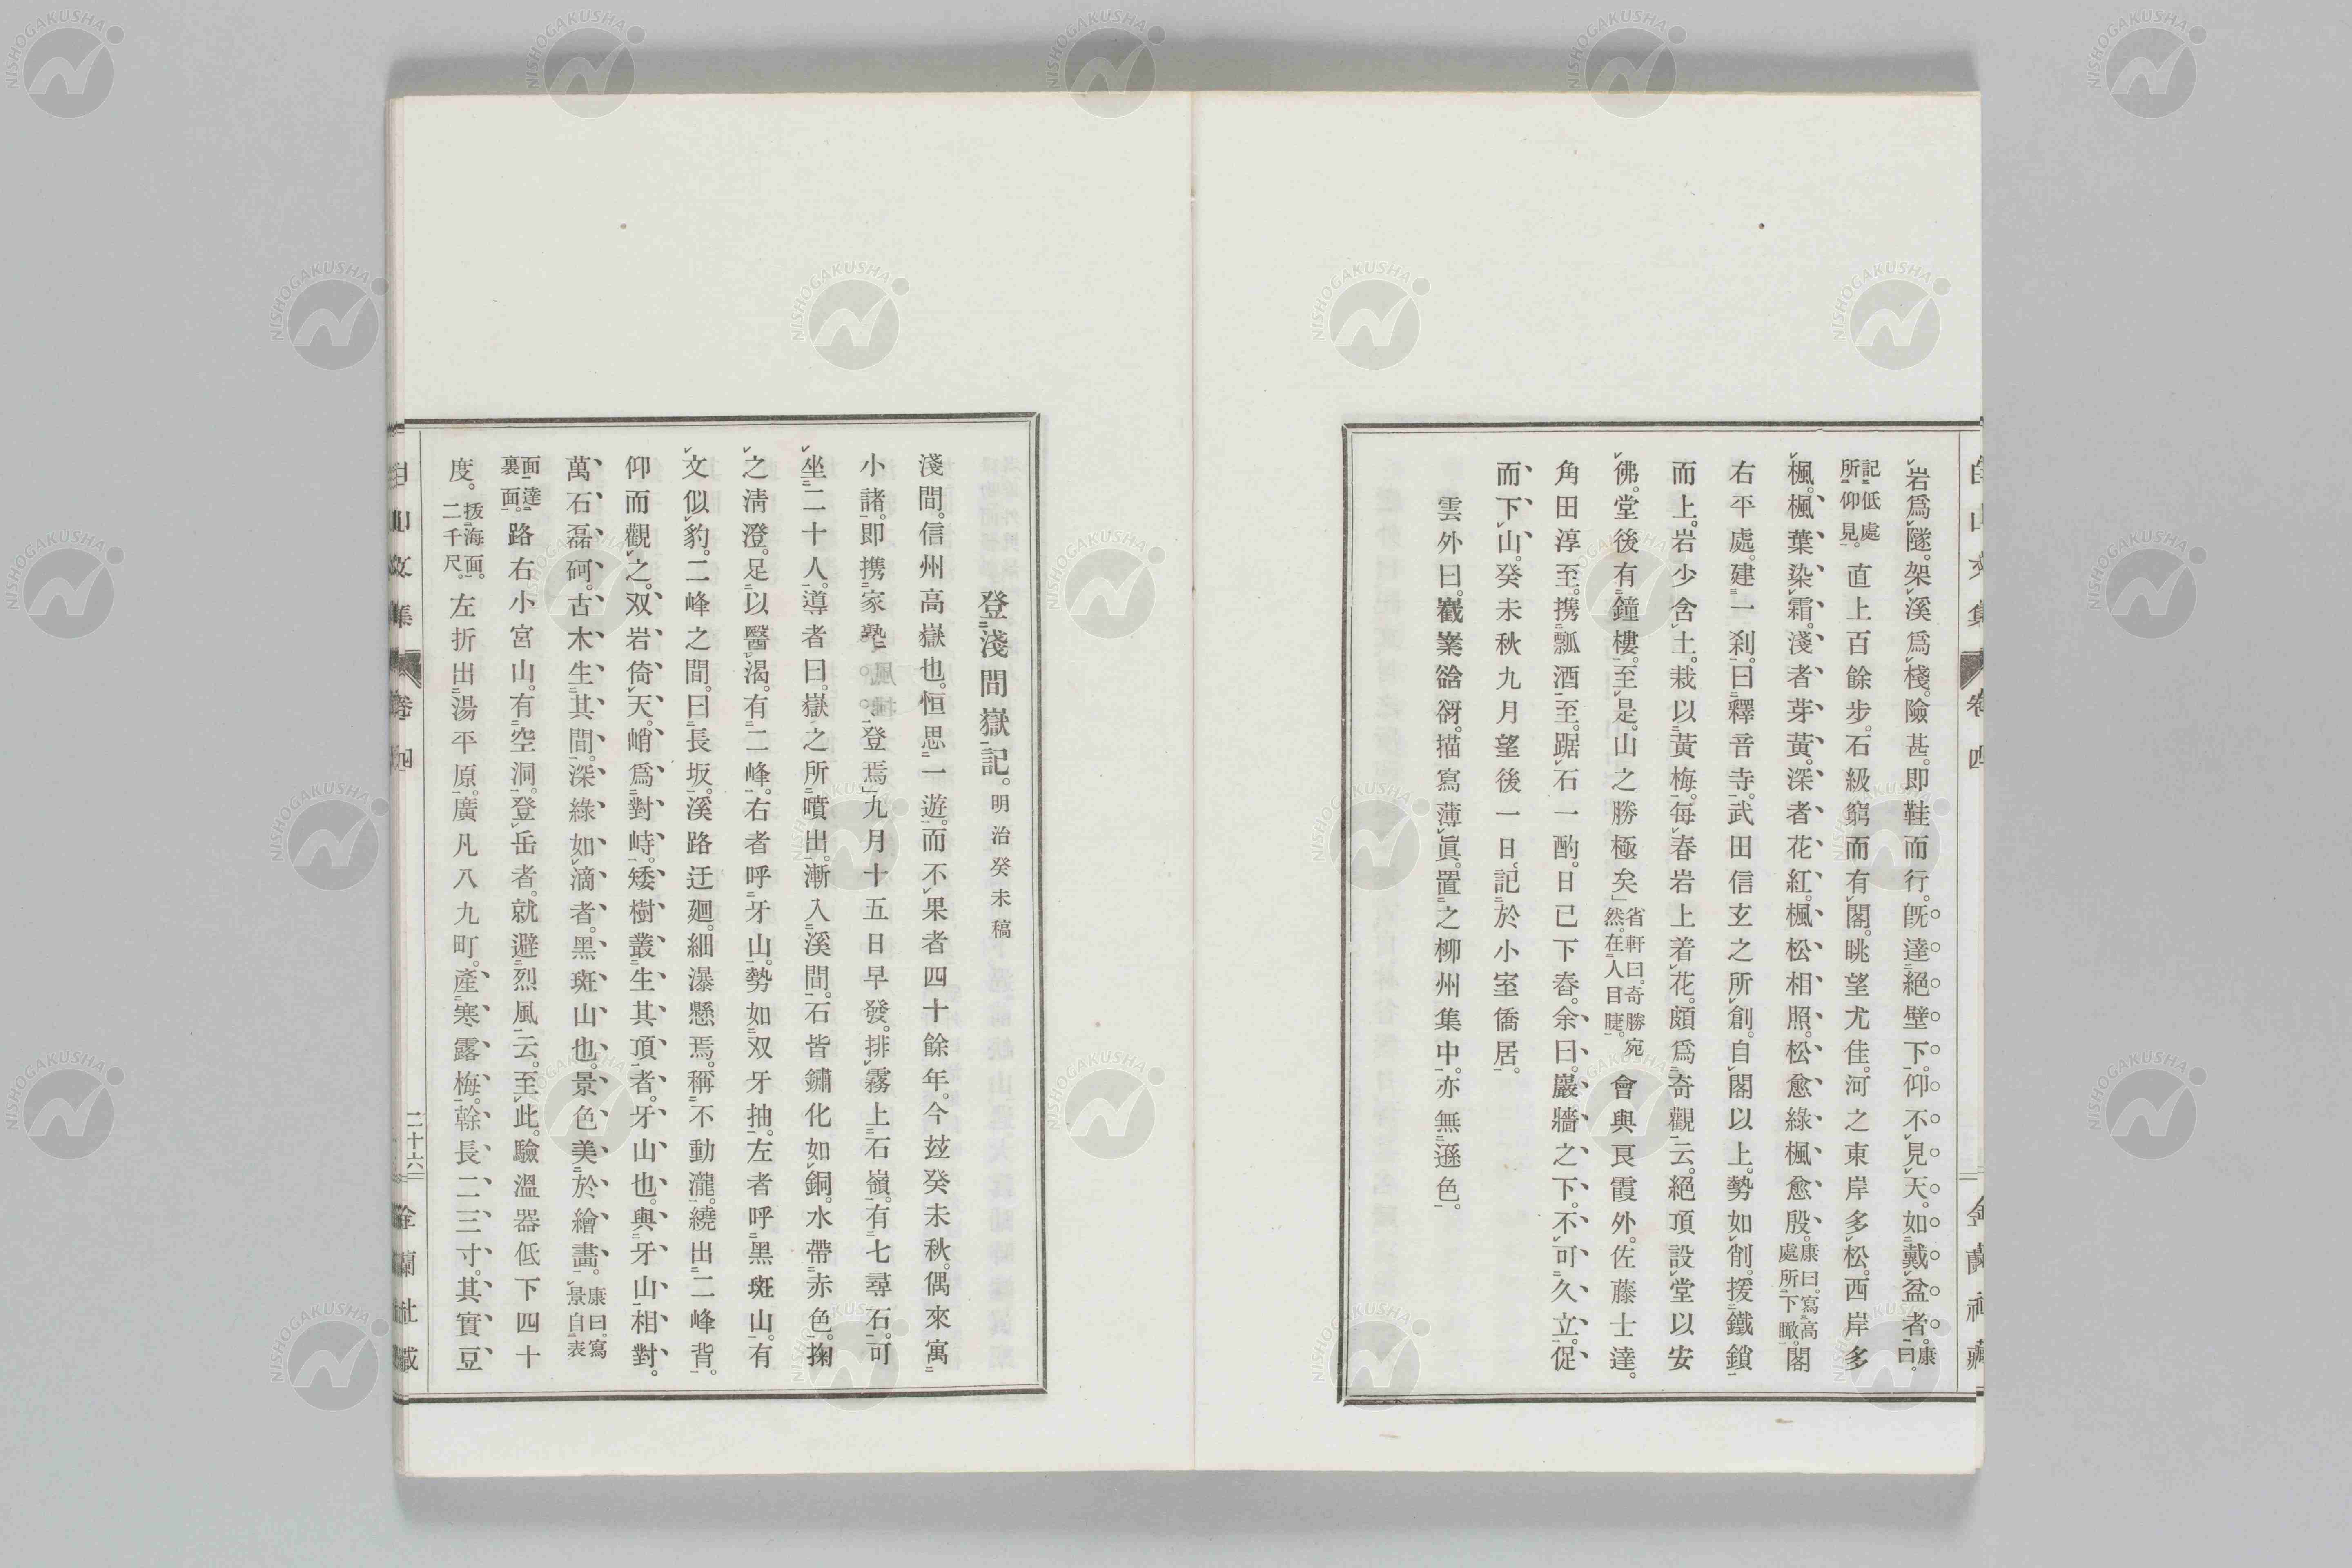 岩爲隧。架溪爲棧。險甚。即鞋而行。旣達絕壁下。仰不見天。如戴盆者。康曰。
記低處所仰見。直上百餘步。石級窮而有閣。眺望尤佳。河之東岸多松。西岸多
楓。楓葉染霜。淺者芽黃。深者花紅。楓松相照。松愈綠楓愈殷。康曰。寫高處所下瞰。閣
右平處。建一刹。曰釋音寺。武田信玄之所創。自閣以上。勢如削。援鐵鎖
而上。岩少含土。栽以黃梅。每春岩上着花。頗爲奇觀云。絕頂設堂以安
佛。堂後有鐘樓。至是。山之勝極矣」省軒曰。奇勝宛然。在人目睫。會與良霞外。佐藤士達。
角田淳至。携瓢酒至。踞石一酌。日已下舂。余曰。巖牆之下。不可久立。促
而下山。癸未秋九月望後一日。記於小室僑居。
雲外曰。嶻嶪谽谺。描寫薄眞。置之柳州集中。亦無遜色。
白山文集 卷四 金蘭社藏
登淺間嶽記。明治癸未稿
淺間。信州高嶽也。恒思一遊。而不果者四十餘年。今玆癸未秋。偶來寓
小諸。即携家塾登焉。」九月十五日早發。排霧上石嶺。有七尋石。可
坐二十人。導者曰。嶽之所噴出。漸入溪間。石皆鏽化如銅。水帶赤色。掬
之淸澄。足以醫渴。有二峰。右者呼牙山。勢如双牙抽。左者呼黑斑山。有
文似豹。二峰之間。曰長坂。溪路迂廻。細瀑懸焉。稱不動瀧。繞出二峰背。
仰而觀之。双岩倚天。峭爲對峙。矮樹叢生其頂者。牙山也。與牙山相對。
萬石磊砢。古木生其間。深綠如滴者。黑斑山也。景色美於繪畵。康曰。寫景自表
面達裏面。路右小宮山。有空洞。登岳者。就避烈風云。至此。驗溫器低下四十
度。拔海面。二千尺。左折出湯平原。廣凡八九町。產寒露梅。幹長二三寸。其實豆
白山文集 卷四 二十六 金蘭社藏